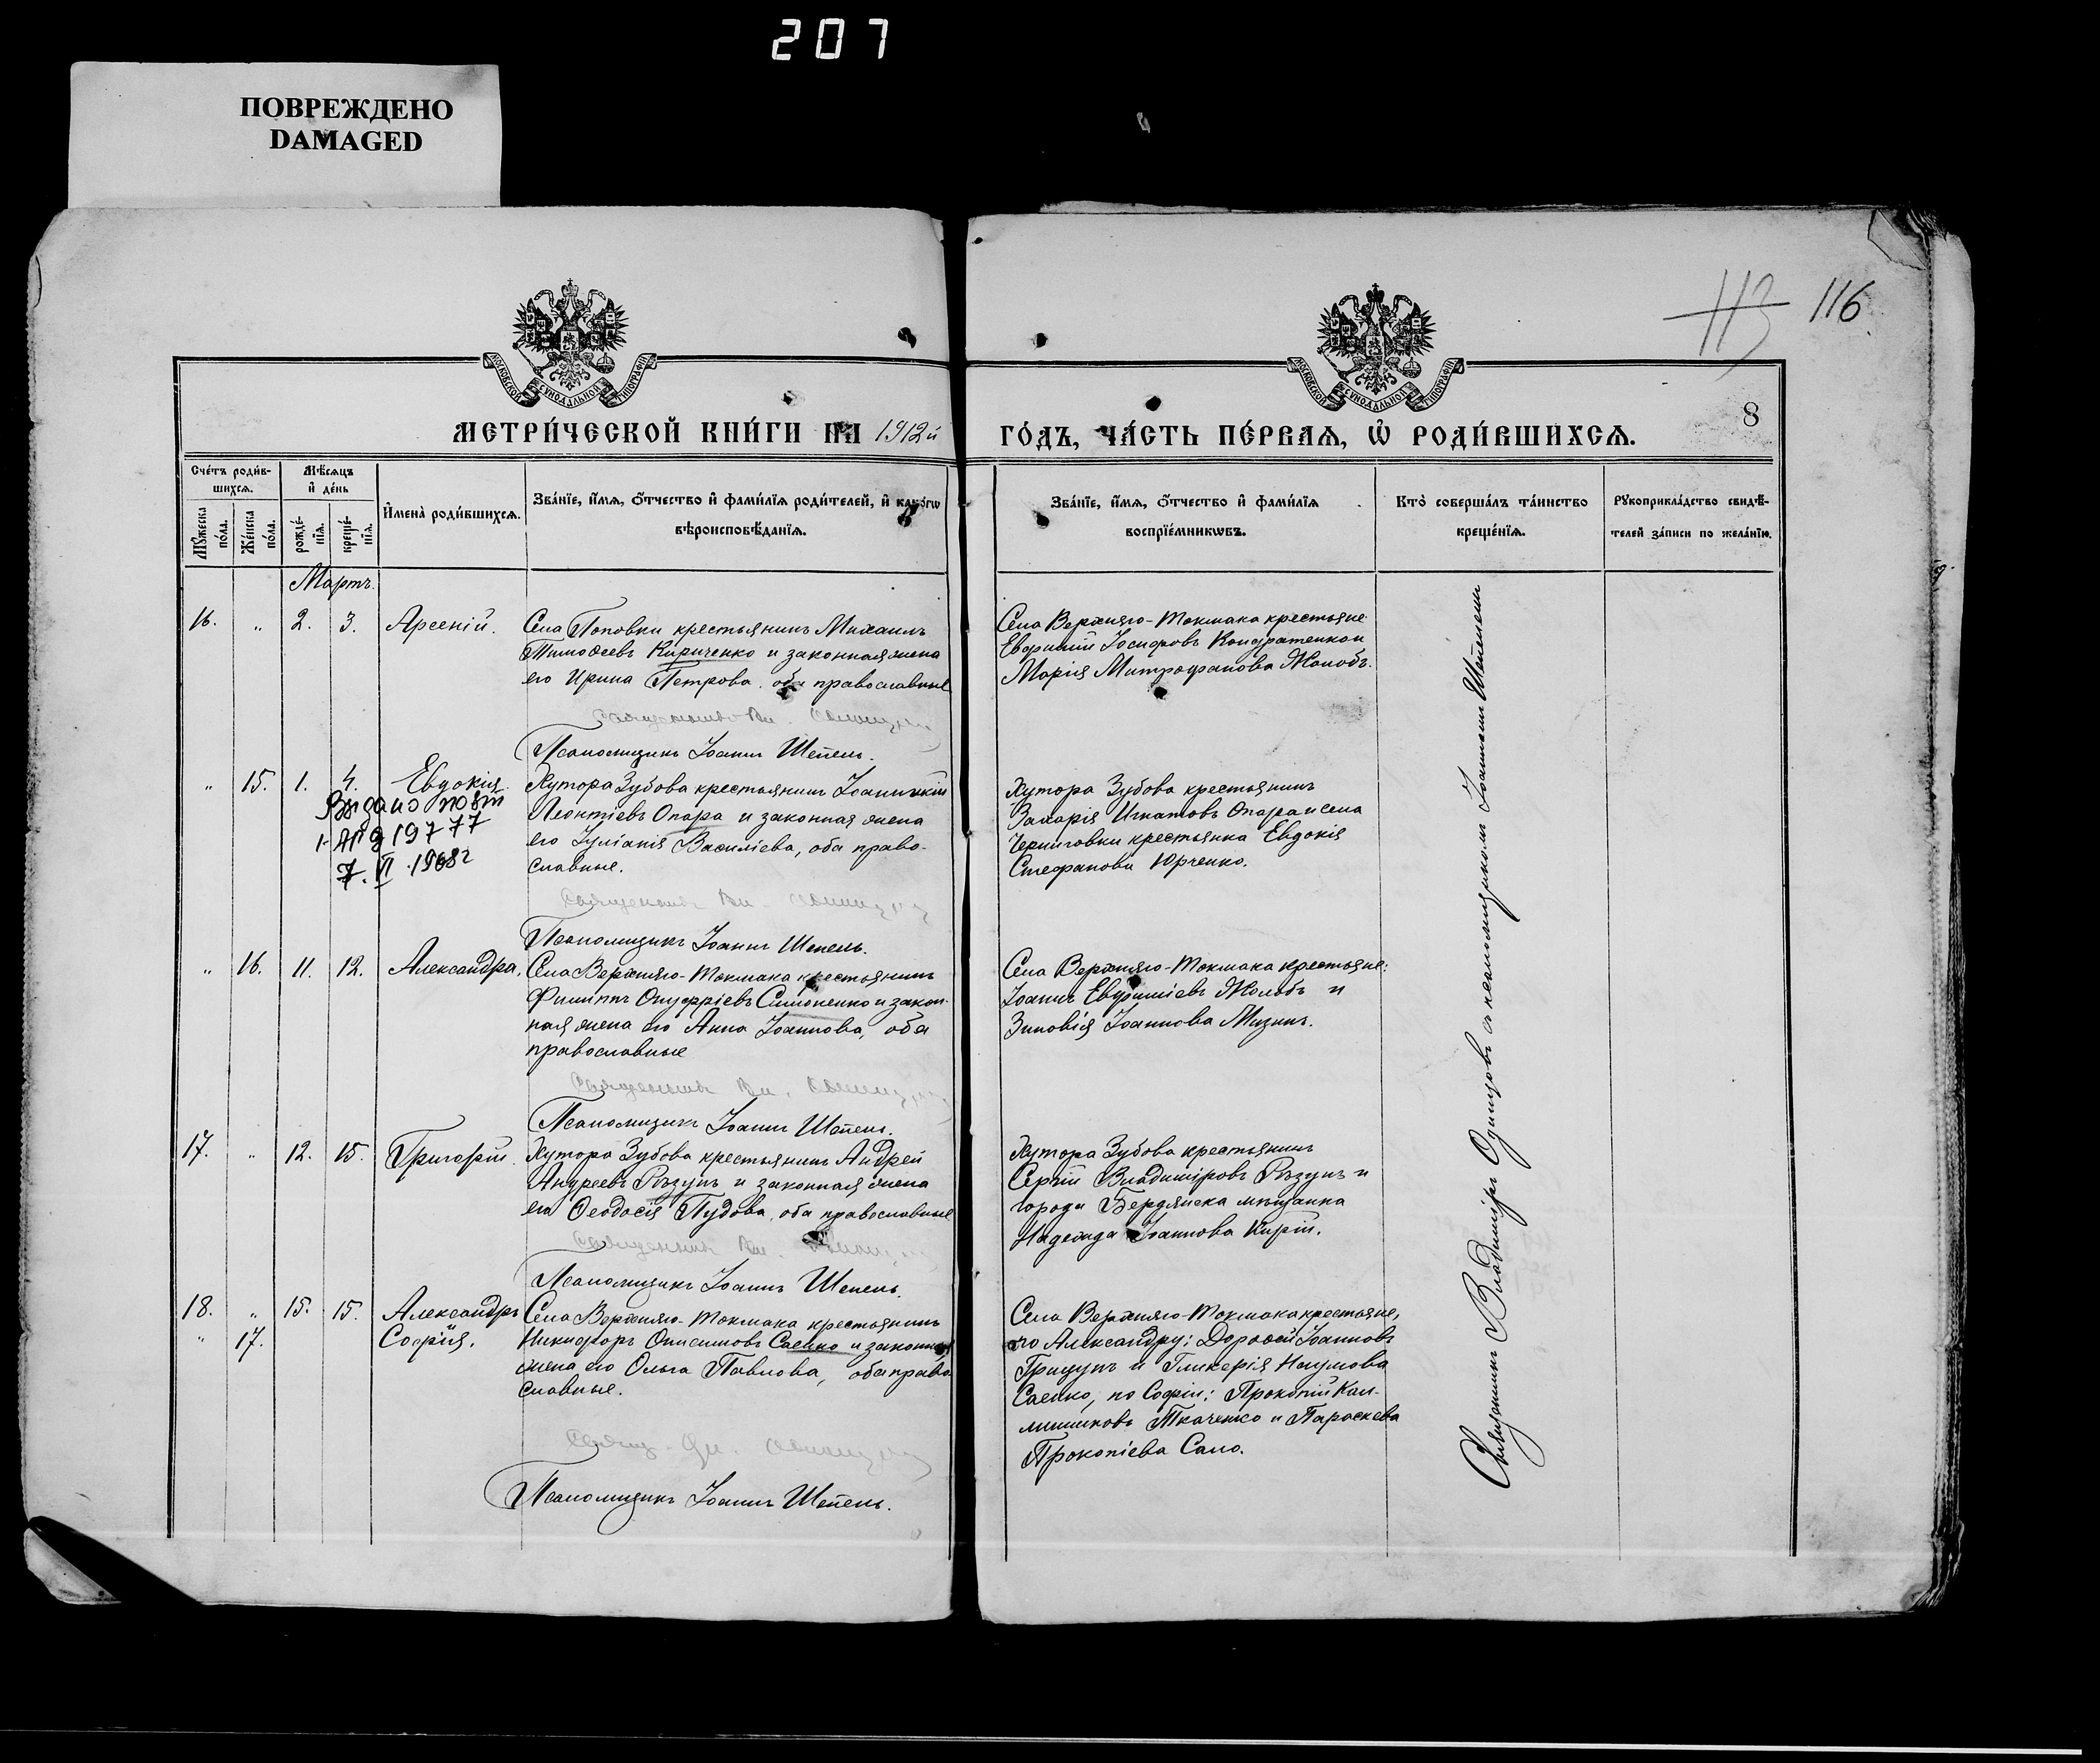 207
ПОВРЕЖДЕНО
DAMAGED
113 116
МОСКОВСКОЙ СѴНОДАЛЬНОЙ ТИПОГРАФІИ
МОСКОВСКОЙ СѴНОДАЛЬНОЙ ТИПОГРАФІИ
8
МЕТРИ́ЧЕСКОЙ КНИ́ГИ НА 1912й
ГО́ДЪ, ЧА́СТЬ ПЕ́РВАЯ, Ѡ РОДИ́ВШИХСЯ.
Сче́тъ роди́в-
шихся.
Мѣ́сяцъ
и҆ де́нь
Мꙋ́жеска
по́ла.
Же́нска
по́ла.
рожде́-
нїя.
креще́-
нїя.
И҆мена̀ роди́вшихся.
Зва́нїе, и҆́мя, о҆́тчество и҆ фами́лїя роди́телей, и҆ како́гѡ
вѣроисповѣ́данїя.
Зва́нїе, и҆́мя, о҆́тчество и҆ фами́лїя
воспрїе́мникѡвъ.
Кто̀ соверша́лъ та́инство
креще́нїя.
Рꙋкоприкла́дство свидѣ́-
телей за́писи по жела́нїю.
Мартъ.
16. " 2. 3. Арсеній.
Села Поповки крестьянинъ Михаилъ
Тимоѳеевъ Кириченко и законная жена
его Ирина Петрова, оба православные
Священникъ Вл.
Псаломщикъ Іоаннъ Шепель.
Села Верхняго-Токмака крестьяне
Евфимій Іосифовъ Кондратенко и
Марія Митрофанова Жолобъ.
" 15. 1. 4. Евдокія.
Выдано повт
7. VI 1968г
Хутора Зубова крестьянинъ Іоанникій
Леонтіевъ Опара и законная жена
его Іуліанія Василіева, оба право-
славные.
Священникъ Вл.
Псаломщикъ Іоаннъ Шепель.
Хутора Зубова крестьянинъ
Захарія Игнатовъ Опара и села
Черниговки крестьянка Евдокія
Стефанова Юрченко.
" 16. 11. 12. Александра.
Села Верхняго-Токмака крестьянинъ
Филиппъ Онуфріевъ Симоненко и закон-
ная жена его Анна Іоаннова, оба
православные
Священникъ Вл.
Псаломщикъ Іоаннъ Шепель.
Села Верхняго-Токмака крестьяне:
Іоаннъ Евфиміевъ Жолобъ и
Зиновія Іоаннова Мизинъ.
17. " 12. 15. Григорій.
Хутора Зубова крестьянинъ Андрей
Андреевъ Рѣзунъ и законная жена
его Ѳеодосія Пудова, оба православные
Священникъ Вл.
Псаломщикъ Іоаннъ Шепель.
Хутора Зубова крестьянинъ
Сергій Владиміровъ Рѣзунъ и
города Бердянска мѣщанка
Надежда Іоаннова Кирій.
18. " 15. 15. Александръ
" 17. Софія.
Села Верхняго-Токмака крестьянинъ
Никифоръ Онисимовъ Саенко и законная
жена его Ольга Павлова, оба право
славные.
Псаломщикъ Іоаннъ Шепель.
Села Верхняго-Токмака крестьяне,
по Александру: Дороѳей Іоанновъ
Грицунъ и Гликерія Наумова
Саенко, по Софіи: Прокопій Кал-
линиковъ Ткаченко и Параскева
Прокопіева Сало.
Священникъ Владиміръ Одинцовъ съ псаломщикомъ Іоанномъ Шепелемъ